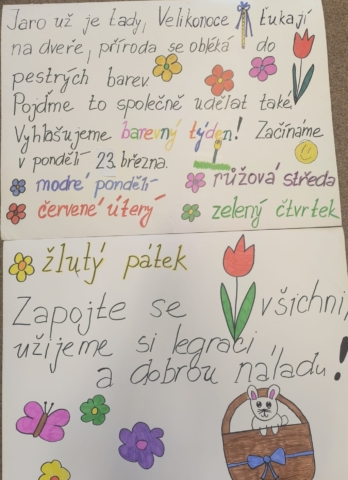 Jaro už je tady, Velikonoce ťukají
na dveře, příroda se obléká do
pestrých barev.
Pojďme to společně udělat také.
Vyhlašujeme barevný týden! Začínáme
v pondělí 23. března.
modré pondělí
růžová středa
červené úterý
zelený čtvrtek
žlutý pátek
Zapojte se všichni,
užijeme si legraci
a dobrou náladu!